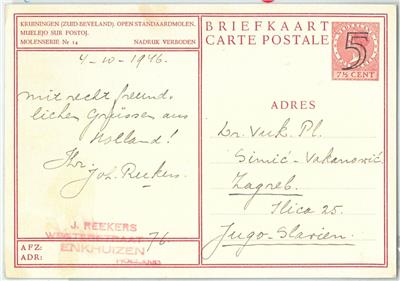 KRUININGEN (ZUID BEVELAND). OPEN STANDAARDMOLEN.
MUELEJO SUR POSTOJ.
MOLENSERIE Nr 14 NADRUK VERBODEN
4-10-1946.
mit recht freund-
lichen Grüssen aus
Holland!
Ihr
Joh. Reekers.
J. REEKERS
WESTERSTRAAT 76.
ENKHUIZEN
HOLLAND
AFZ:
ADR:
BRIEFKAART
CARTE POSTALE
5
7½ CENT
ADRES
Dr. Vuk. Pl.
Simić-Vakanović
Zagreb.
Ilica 25.
Jugo-Slavien.